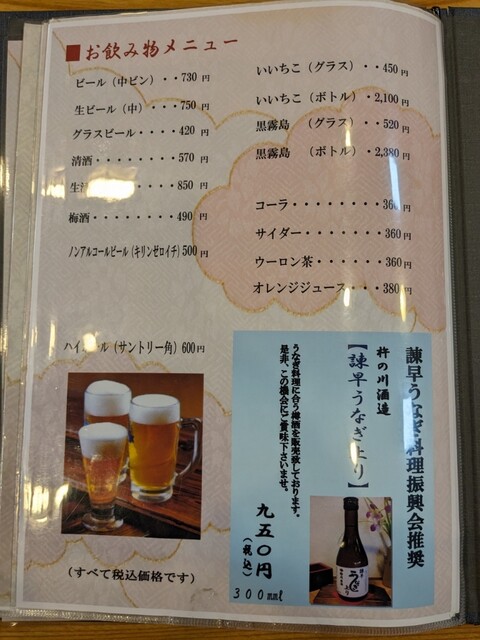 ■お飲み物メニュー
ビール（中ビン）・・730円
生ビール（中）・・・750円
グラスビール・・・・420円
清酒・・・・・・・・570円
生・・・・850円
梅酒・・・・・・・・490円
ノンアルコールビール（キリンゼロイチ）500円
ハイ ール（サントリー角）600円
いいちこ（グラス）・・450円
いいちこ（ボトル）・2,100円
黒霧島　（グラス）・・520円
黒霧島　（ボトル）・2,380円
コーラ・・・・・・・・360円
サイダー・・・・・・・360円
ウーロン茶・・・・・・360円
オレンジジュース・・・380円
諫早うなぎ料理振興会推奨
杵の川酒造
【諫早うなぎより】
うなぎ料理に合う御酒を販売致しております。
是非、この機会にご賞味下さいませ。
九五〇円
（税込）
300mmℓ
（すべて税込価格です）